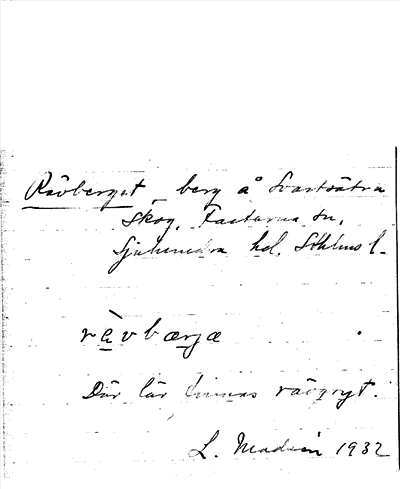 Rävberget, berg å Svartsätra
skog, Fasterna sn,
Sjuhundra hd. Sthlms l.
rävbærjæ
Där lär finnas rävgryt.
L. Modin 1932